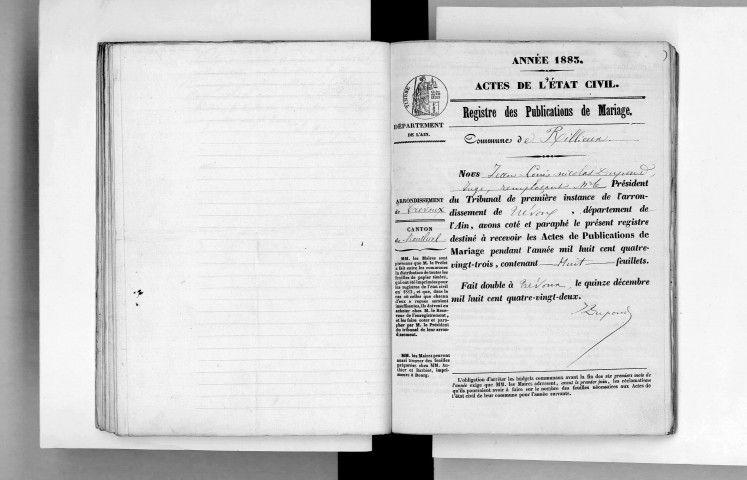 ANNÉE 1883.
ACTES DE L'ÉTAT CIVIL.
Registre des Publications de Mariage.
Commune de Rillieux
TIMBRE
DÉPARTEMENT
DE L'AIN.
ARRONDISSEMENT
de Trévoux
CANTON
de Montluel
MM. les Maires sont
prévenus que M. le Préfet
a fait entre les communes
la distribution de toutes les
feuilles de papier timbré,
qui ont été imprimées pour
les registres de l'état civil
en 1883, et que, dans le
cas où celles que chacun
d'eux a reçues seraient
insuffisantes, ils doivent en
acheter chez M. le Rece-
veur de l'enregistrement,
et les faire coter et para-
pher par M. le Président
du tribunal de leur arron-
dissement.
MM. les Maires peuvent
aussi trouver des feuilles
préparées chez MM. Au-
thier et Barbier, impri-
meurs à Bourg.
Nous Jean Louis Nicolas Dupond
Juge, remplaçant Mr le Président
du Tribunal de première instance de l'arron-
dissement de Trévoux, département de
l'Ain, avons coté et paraphé le présent registre
destiné à recevoir les Actes de Publications de
Mariage pendant l'année mil huit cent quatre-
vingt-trois, contenant Huit feuillets.
Fait double à Trévoux, le quinze décembre
mil huit cent quatre-vingt-deux.
Dupond
L'obligation d'arrêter les budgets communaux avant la fin des six premiers mois de
l'année exige que MM. les Maires adressent, avant le premier juin, les réclamations
qu'ils pourraient avoir à faire sur le nombre des feuilles nécessaires aux Actes de
l'état civil de leur commune pour l'année suivante.